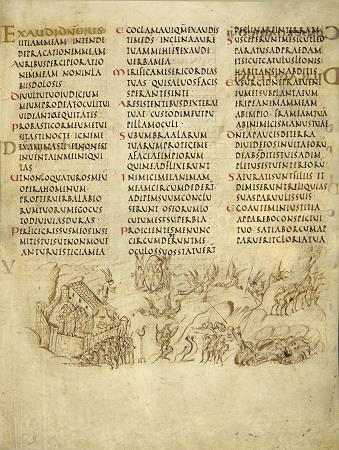 EXAUDI DNE IUS
TITIAM MEAM INTENDE
DEPRAECATIONEM MEAM
AURIBUS PERCIPE ORATIO
NEM MEAM NON IN LA
BIIS DOLOSIS
DE UULTU TUO IUDICIUM
MEUM PRODEAT OCULI TUI
UIDEANT AEQUITATES
PROBASTI COR MEUM ET UI
SITASTI NOCTE IGNE ME
EXAMINASTI ET NON EST
INUENTA IN ME INIQUI
TAS
UT NON LOQUATUR OS MEU
OPERA HOMINUM
PROPTER UERBA LABIO
RUM TUORUM EGO CUS
TODIUI UIAS DURAS
PERFICE GRESSUS MEOS IN SE
MITIS TUIS UT NON MOUE
ANTUR UESTIGIA MEA
EGO CLAMAUI QM EXAUDIS
TI ME DS INCLINA AURE
TUAM MIHI ET EXAUDI
UERBA MEA
MIRIFICA MISERICORDIAS
TUAS QUI SALUOS FACIS
SPERANTES IN TE
A RESISTENTIBUS DEXTERAE
TUAE CUSTODI ME UT PU
PILLAM OCULI
SUB UMBRA ALARUM
TUARUM PROTEGE ME
A FACIE IMPIORUM
QUI ME ADFLIXERUNT
INIMICI MEI ANIMAM
MEAM CIRCUMDEDERT
ADIPEM SUUM CONCLU
SERUNT OS EORUM LO
CUTUM EST SUPERBIA
PROICIENTES ME NUNC
CIRCUMDEDERUNT ME
OCULOS SUOS STATUERT
DECLINARE IN TERRAM
SUSCEPERUNT ME SICUT LEO
PARATUS AD PRAEDAM ET
SICUT CATULUS LEONIS
HABITANS IN ABDITIS
EXSURGE DNE PRAEUENI
EUM ET SUBPLANTA EUM
ERIPE ANIMAM MEAM
AB IMPIO FRAMEAM TUA
AB INIMICIS MANUS TUAE
DNE A PAUCIS DE TERRA
DIUIDE EOS IN UITA EORU
DE ABSCONDITIS TUIS ADIM
PLETUS EST UENTER EORUM
SATURATI SUNT FILIIS ET
DIMISERUNT RELIQUIAS
SUAS PARUULIS SUIS
EGO AUTEM IN IUSTITIA
APPAREBO CONSPECTUI
TUO SATIABOR CUM AP
PARUERIT GLORIA TUA